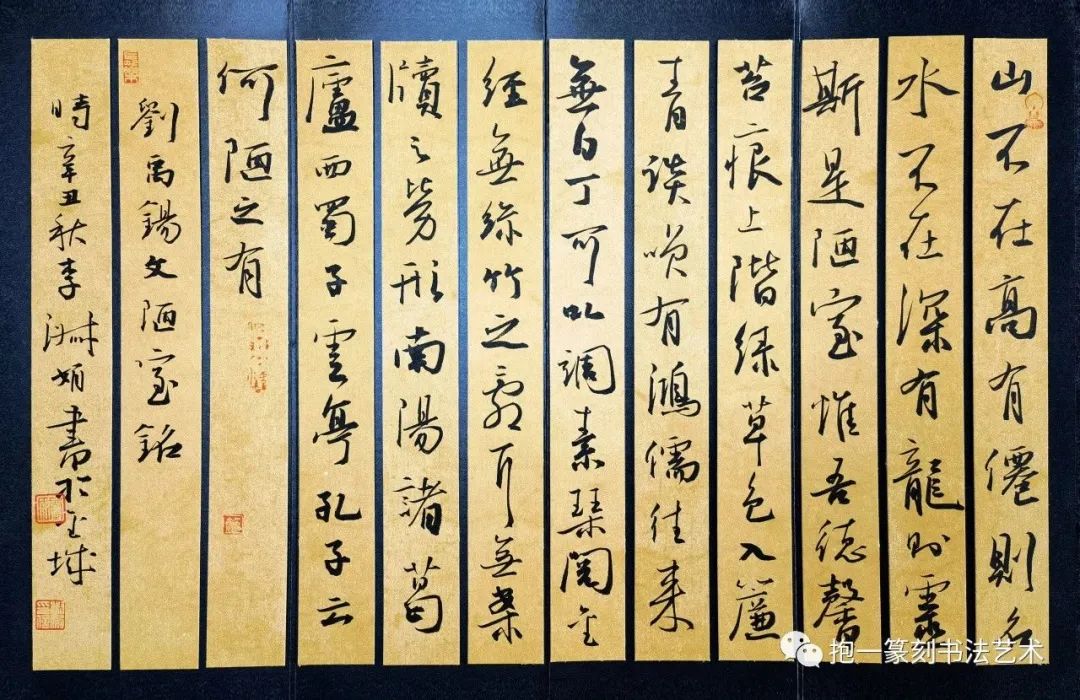 山不在高有僊則名
水不在深有龍則靈
斯是陋室惟吾德馨
苔痕上階緑草色入簾
青談笑有鴻儒往來
無白丁可以調素琴閱金
經無絲竹之亂耳無案
牘之勞形南陽諸葛
廬西蜀子雲亭孔子云
何陋之有
劉禹錫文陋室銘
時辛丑秋李淑娟書於金城
抱一篆刻书法艺术